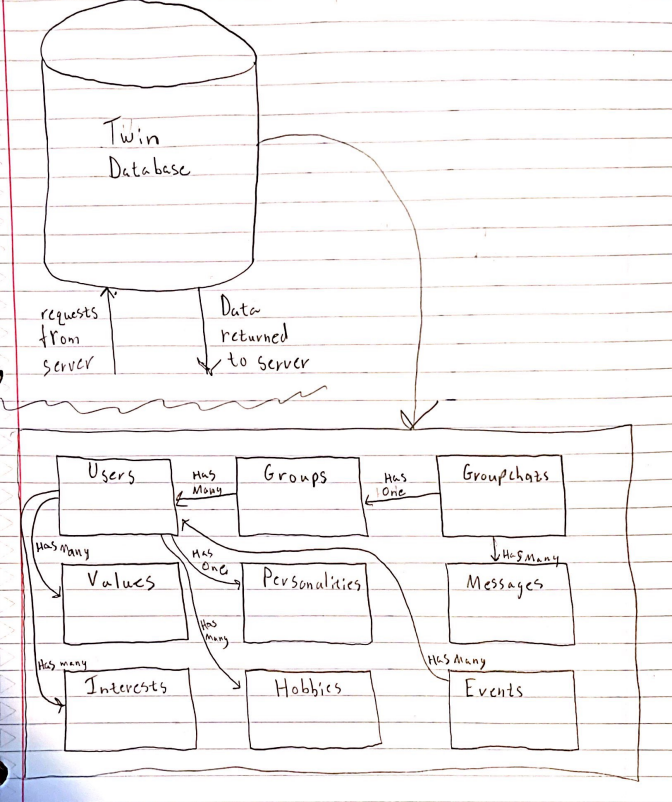 Twin
Database
requests
from
server
Data
returned
to server
Users
Has
Many
Groups
Has
One
Groupchats
Has Many
Has
One
Has Many
Values
Personalities
Messages
Has
Many
Has many
Has Many
Interests
Hobbies
Events